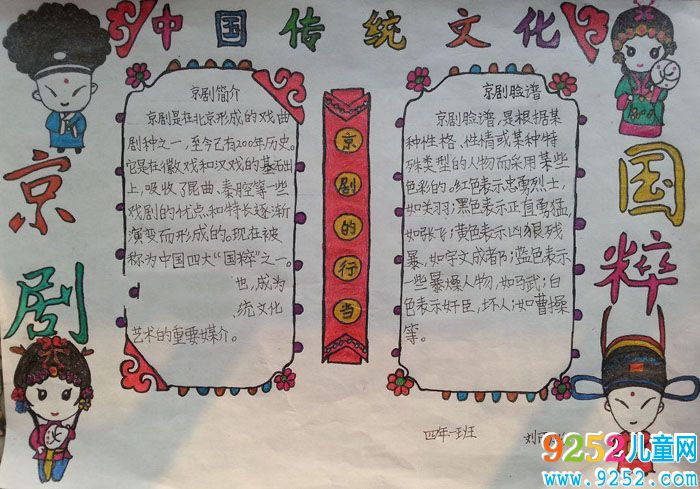 中国传统文化
京剧
国粹
京剧简介
京剧是在北京形成的戏曲
剧种之一,至今已有200年历史。
它是在徽戏和汉戏的基础
上,吸收了昆曲、秦腔等一些
戏剧的优点和特长逐渐
演变而形成的。现在被
称为中国四大“国粹”之一。
也,成为
统文化
艺术的重要媒介。
京剧的行当
京剧脸谱
京剧脸谱,是根据某
种性格、性情或某种特
殊类型的人物而采用某些
色彩的。红色表示忠勇烈士,
如关羽;黑色表示正直勇猛,
如张飞;黄色表示凶狠残
暴,如宇文成都;蓝色表示
一些暴燥人物,如马武;白
色表示奸臣,坏人;如曹操
等。
四年一班
刘
9252儿童网
www.9252.com